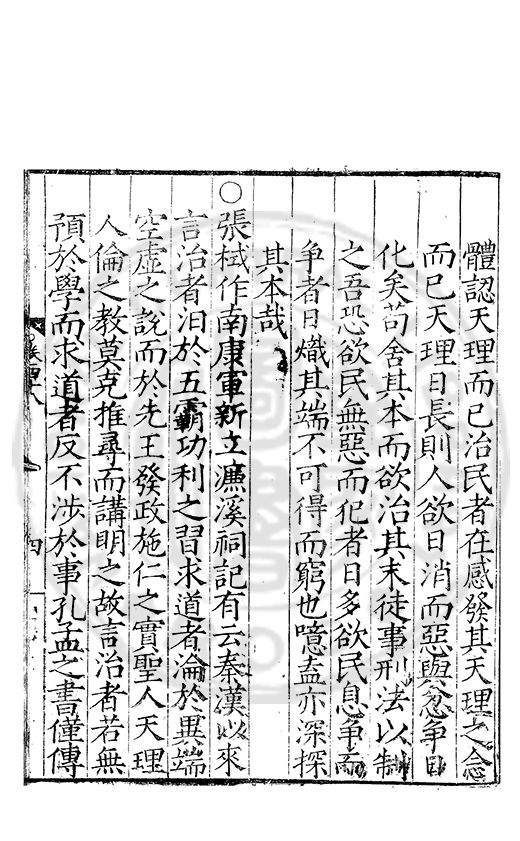 體認天理而已治民者在感發其天理之念
而已天理日長則人欲日消而惡與忿爭日
化矣苟舍其本而欲治其末徒事刑法以制
之吾恐欲民無惡而犯者日多欲民息爭而
爭者日熾其端不可得而窮也噫盍亦深探
其本哉
○張栻作南康軍新立濂溪祠記有云秦漢以來
言治者汩於五霸功利之習求道者淪於異端
空虛之說而於先王發政施仁之實聖人天理
人倫之教莫克推尋而講明之故言治者若無
預於學而求道者反不涉於事孔孟之書僅傳
四